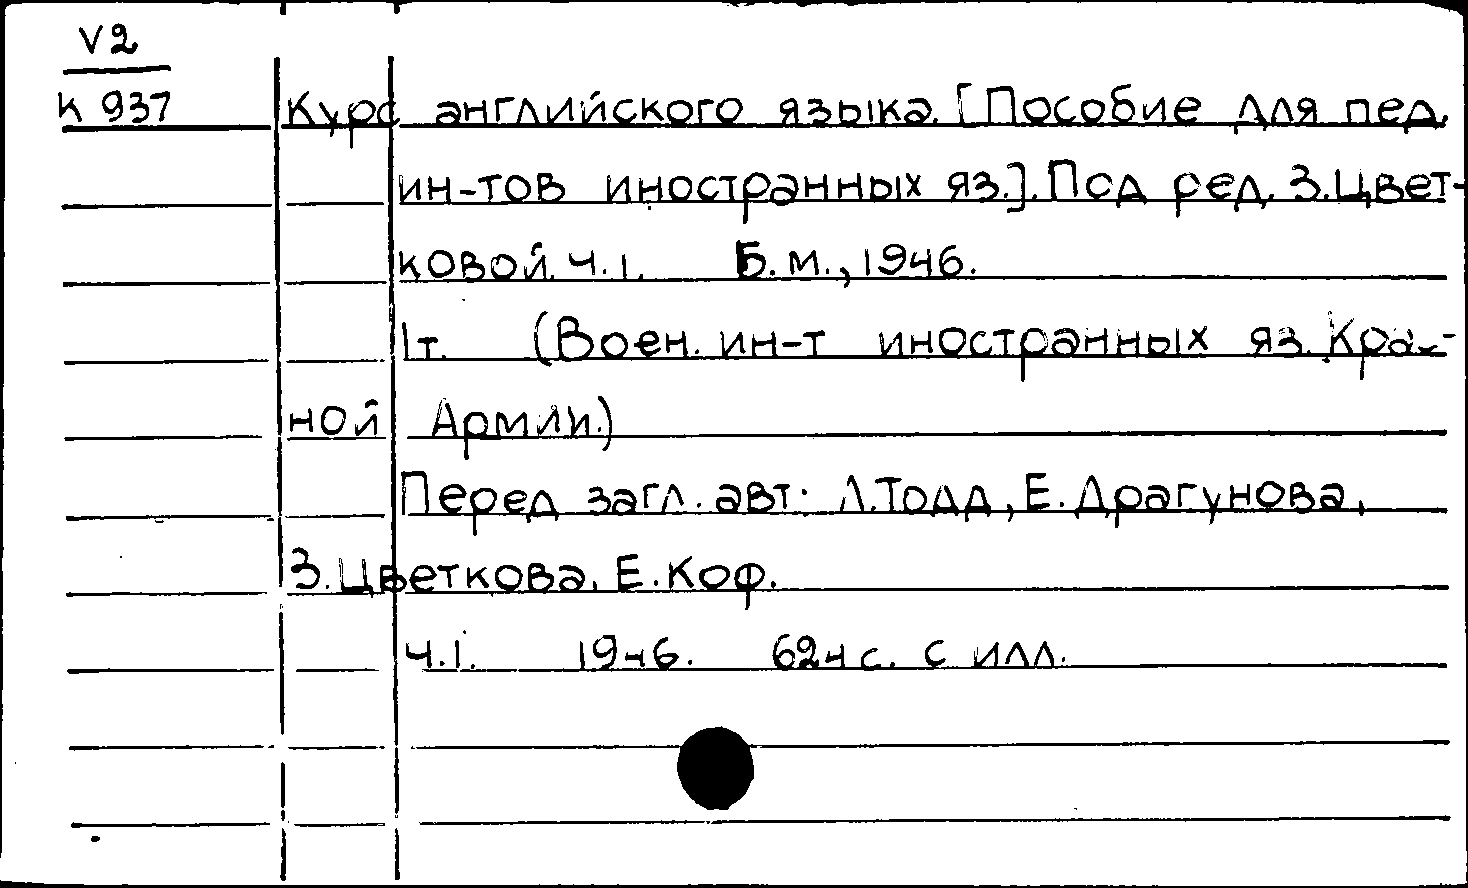 V2
К 937
Курс английского языка. [Пособие для пед.
ин-тов иностранных яз.]. Под ред. З.Цвет-
ковой. Ч.1. Б.м., 1946.
1т. (Воен. ин-т иностранных яз. Крас-
ной Армии.)
Перед загл. авт: Л.Тодд, Е.Драгунова,
З.Цветкова, Е.Коф.
Ч.1. 1946. 624 с. с илл.